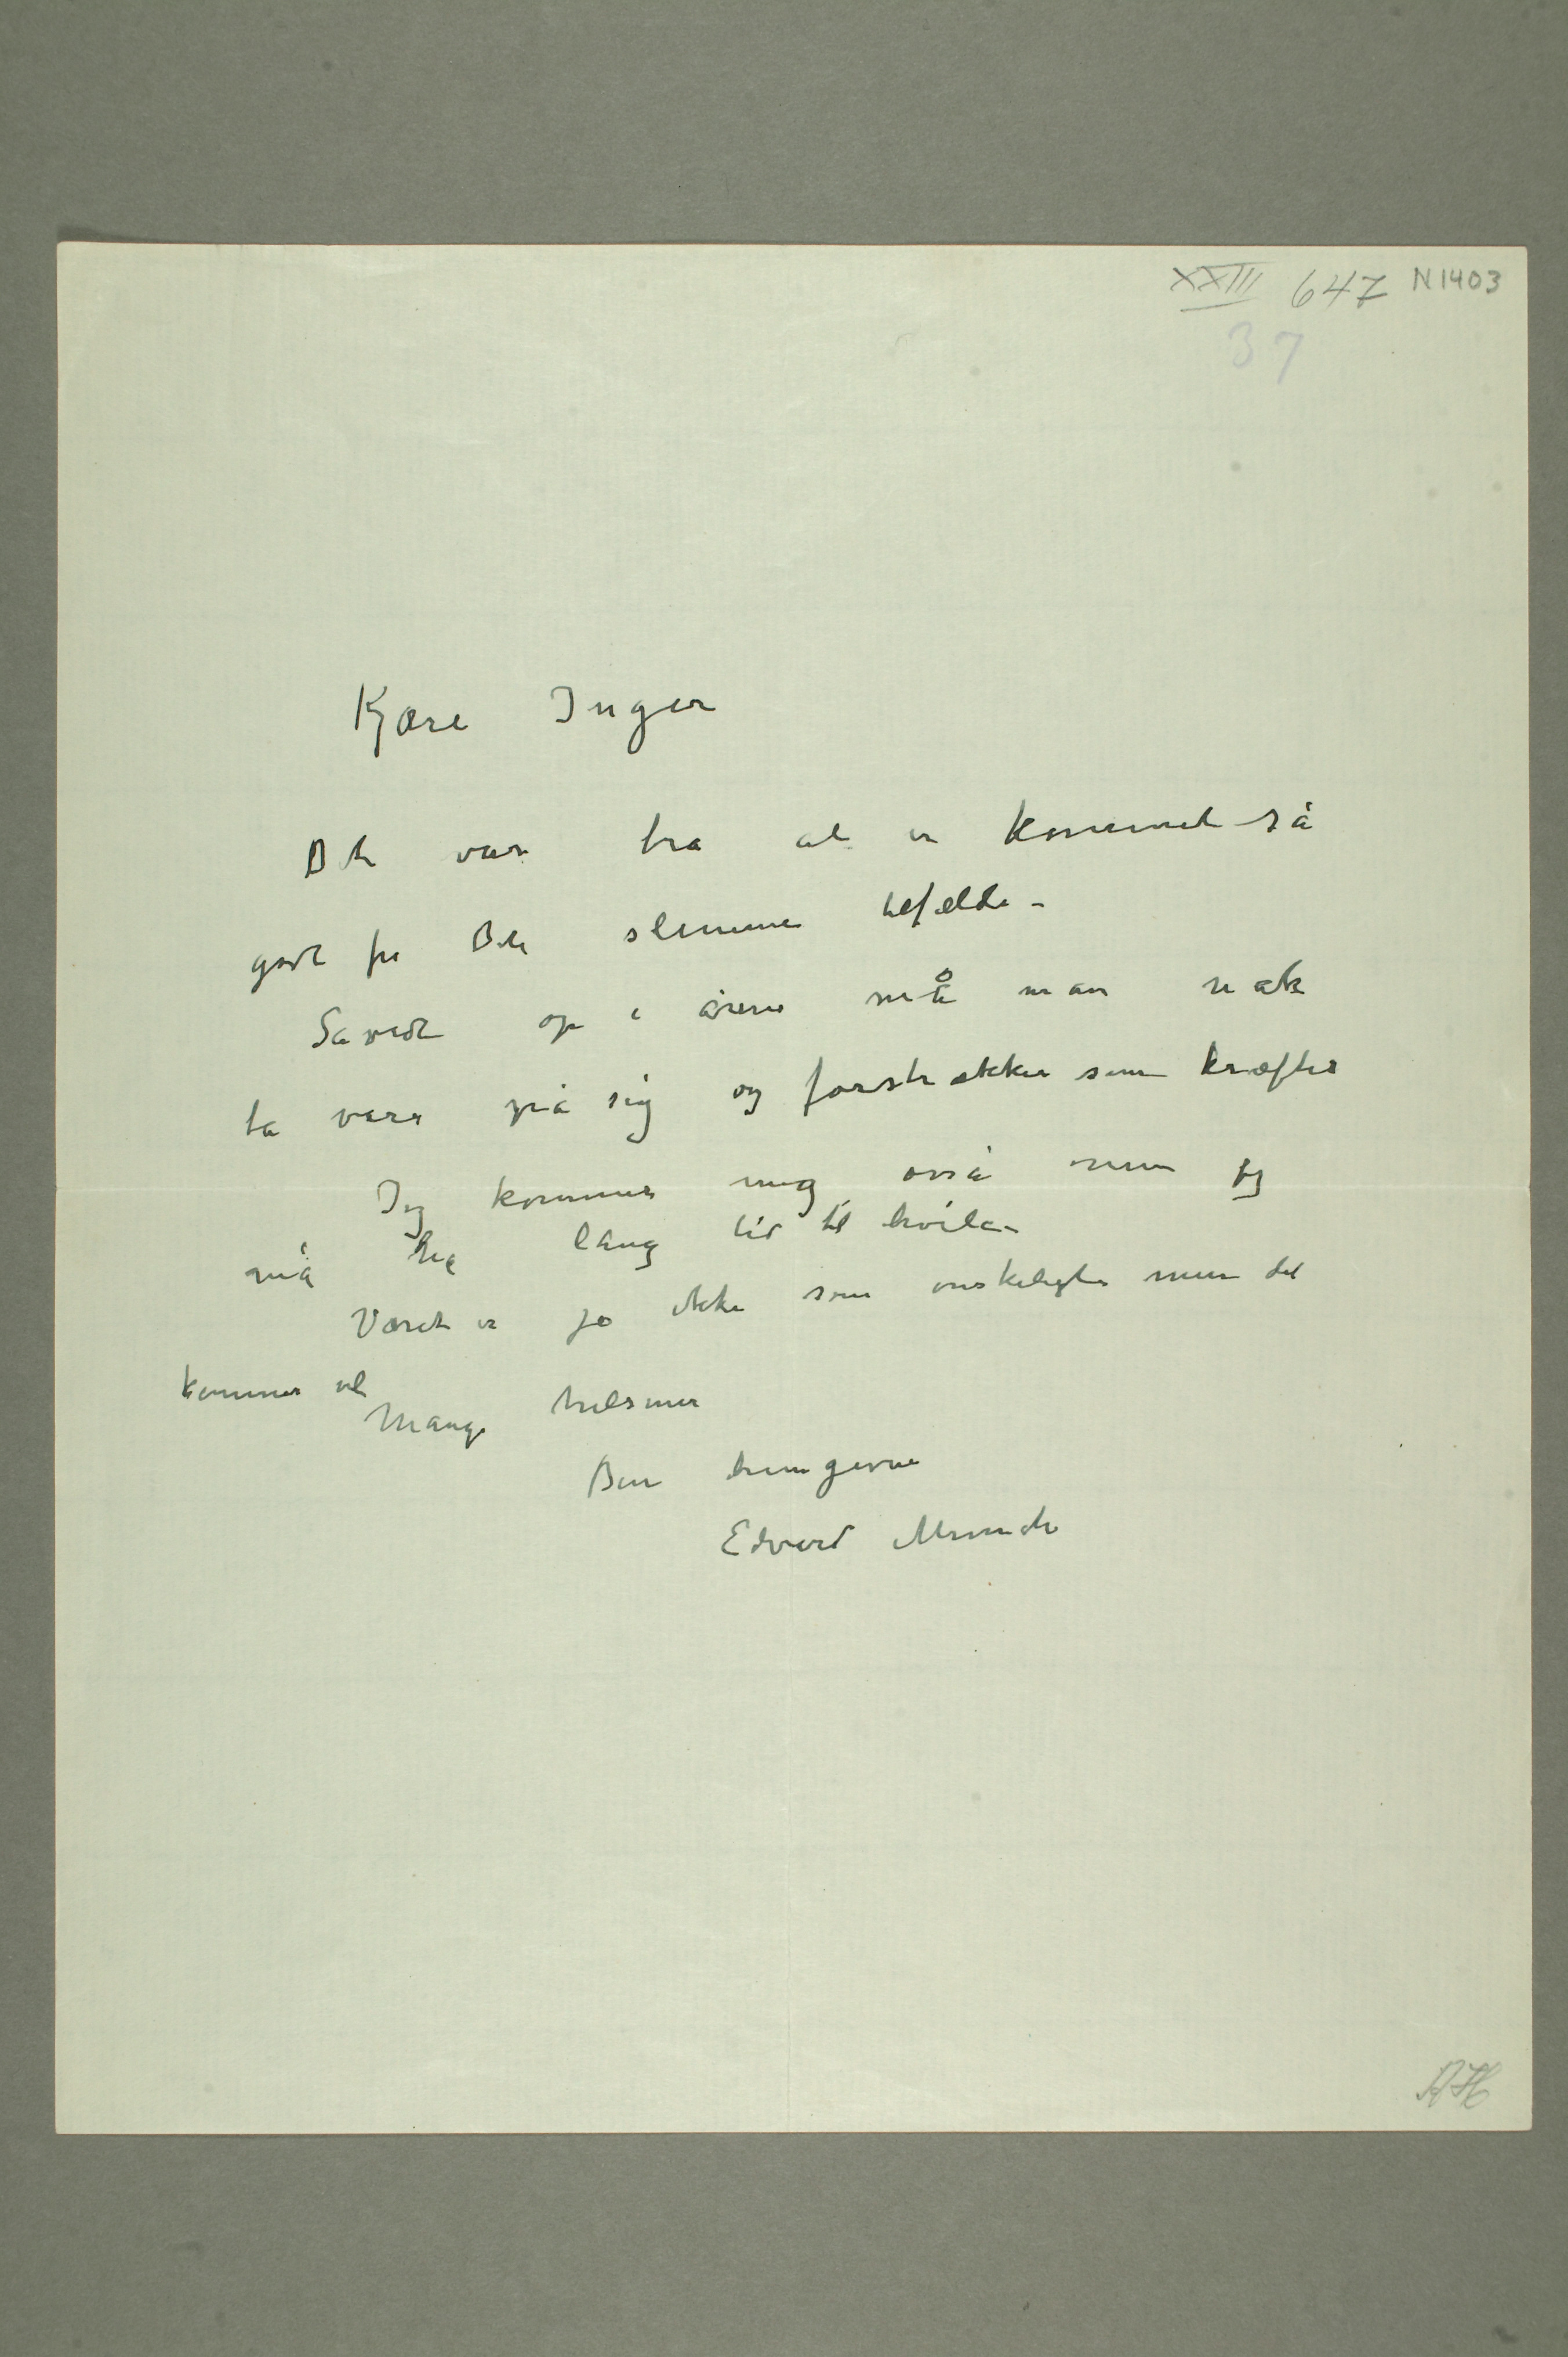 XXIII 647 N1403
37
Kjære Inger
Det var bra at er kommet så
godt fra Det slemme tilfælde –
Såvidt op i årene må man nok
ta vare på sig og forstrækker sine kræfter
Jeg kommer mig også men jeg
må ha lang tid til hvile –
Været er jo ikke som ønskeligt men det
kommer vel
Mange hilsener
Din hengivne
Edvard Munch
AH